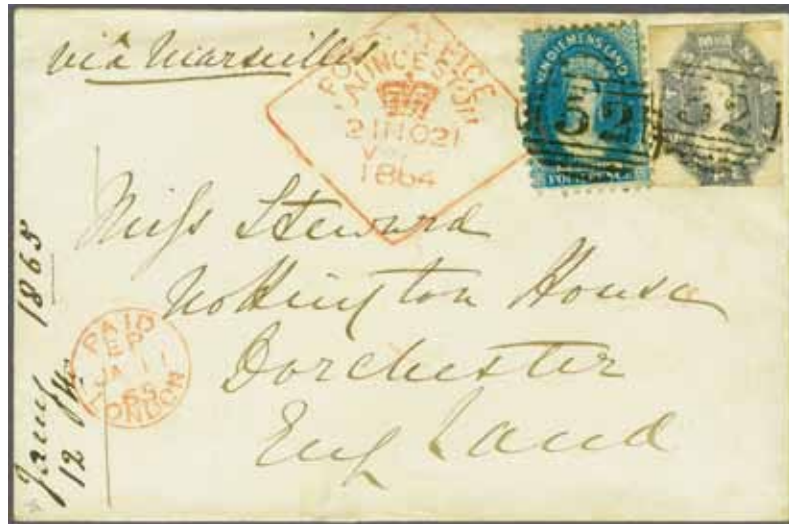 via Marseilles
POST OFFICE
LAUNCESTON
1864
VAN DIEMENS LAND
52
FOUR PENCE
52
Miss Steward
Nottington House
Dorchester
England
PAID
JA 11
65
LONDON
Jany 12th 1865